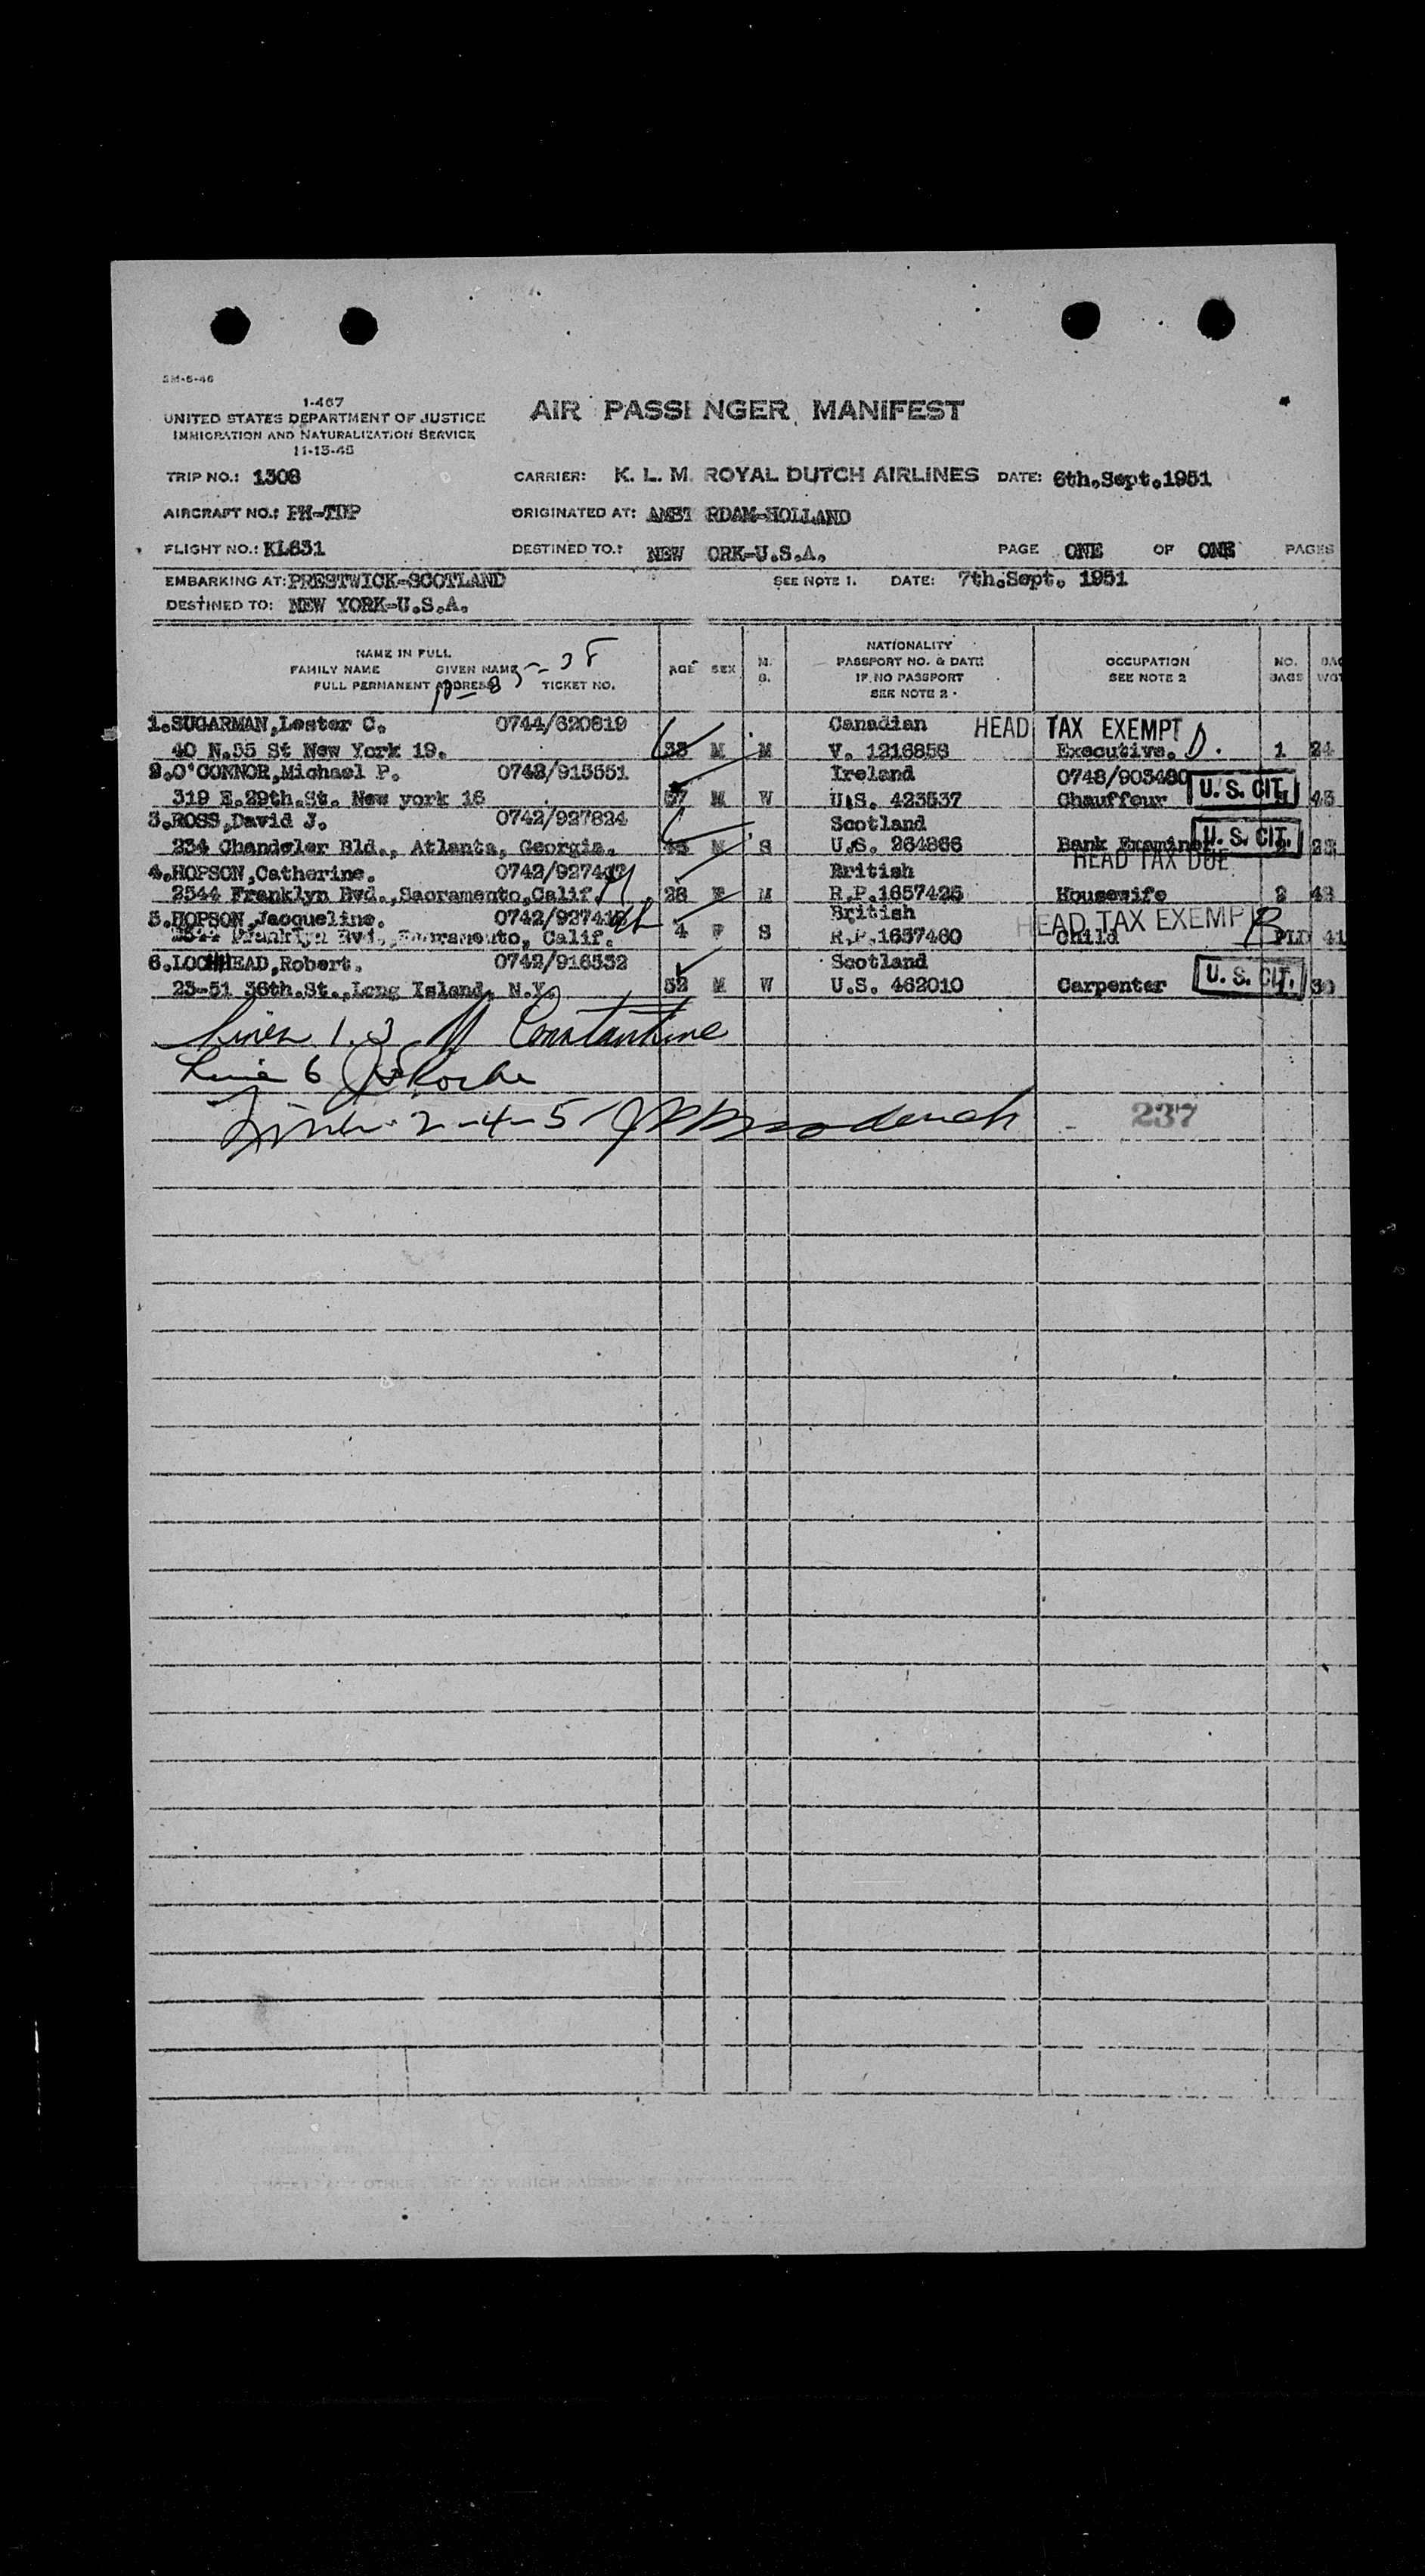 SM-6-46
I-467
UNITED STATES DEPARTMENT OF JUSTICE
IMMIGRATION AND NATURALIZATION SERVICE
11-15-45
AIR PASSENGER MANIFEST
TRIP NO.: 1308 CARRIER: K. L. M. ROYAL DUTCH AIRLINES DATE: 6th.Sept.1951
AIRCRAFT NO.: PH-TDP ORIGINATED AT: AMST RDAM-HOLLAND
FLIGHT NO.: KL631 DESTINED TO.: NEW ORK-U.S.A. PAGE ONE OF ONE PAGES
EMBARKING AT: PRESTWICK-SCOTLAND SEE NOTE 1. DATE: 7th.Sept. 1951
DESTINED TO: NEW YORK-U.S.A.
NAME IN FULL
FAMILY NAME GIVEN NAME
FULL PERMANENT ADDRESS TICKET NO.
AGE SEX M. S.
NATIONALITY
PASSPORT NO. & DATE
IF NO PASSPORT
SEE NOTE 2.
OCCUPATION
SEE NOTE 2
NO. BAGS
BAG WGT
1.SUGARMAN,Lester C. 0744/620819 Canadian HEAD TAX EXEMPT
40 N.55 St New York 19. M M V. 1216856 Executive. 1 24
2.O'CONNOR,Michael P. 0742/915551 Ireland 0748/903480
319 E.29th.St. New york 16 57 M W U.S. 423537 Chauffeur U. S. CIT. 43
3.ROSS,David J. 0742/927824 Scotland
234 Chandeler Bld., Atlanta, Georgia. M S U.S. 264866 Bank Examiner U. S. CIT.
HEAD TAX DUE
4.HOPSON,Catherine. British
2544 Franklyn Bvd.,Sacramento,Calif. 28 F M R.P.1657425 Housewife 2 43
5.HOPSON,Jacqueline. British HEAD TAX EXEMPT
2544 Franklyn Bvd.,Sacramento, Calif. 4 F S R.P.1657460 Child 41
6.LOCHHEAD,Robert. 0742/916532 Scotland
23-51 36th.St.,Long Island, N.Y. 52 M W U.S. 462010 Carpenter U. S. CIT. 30
Lines 1.3 Constantine
Line 6
Lines 2-4-5
237